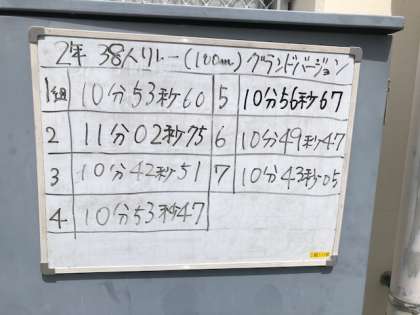 2年 38人リレー(100m) グランドバージョン
1組 10分53秒60 5 10分56秒67
2 11分02秒75 6 10分49秒47
3 10分42秒51 7 10分43秒05
4 10分53秒47